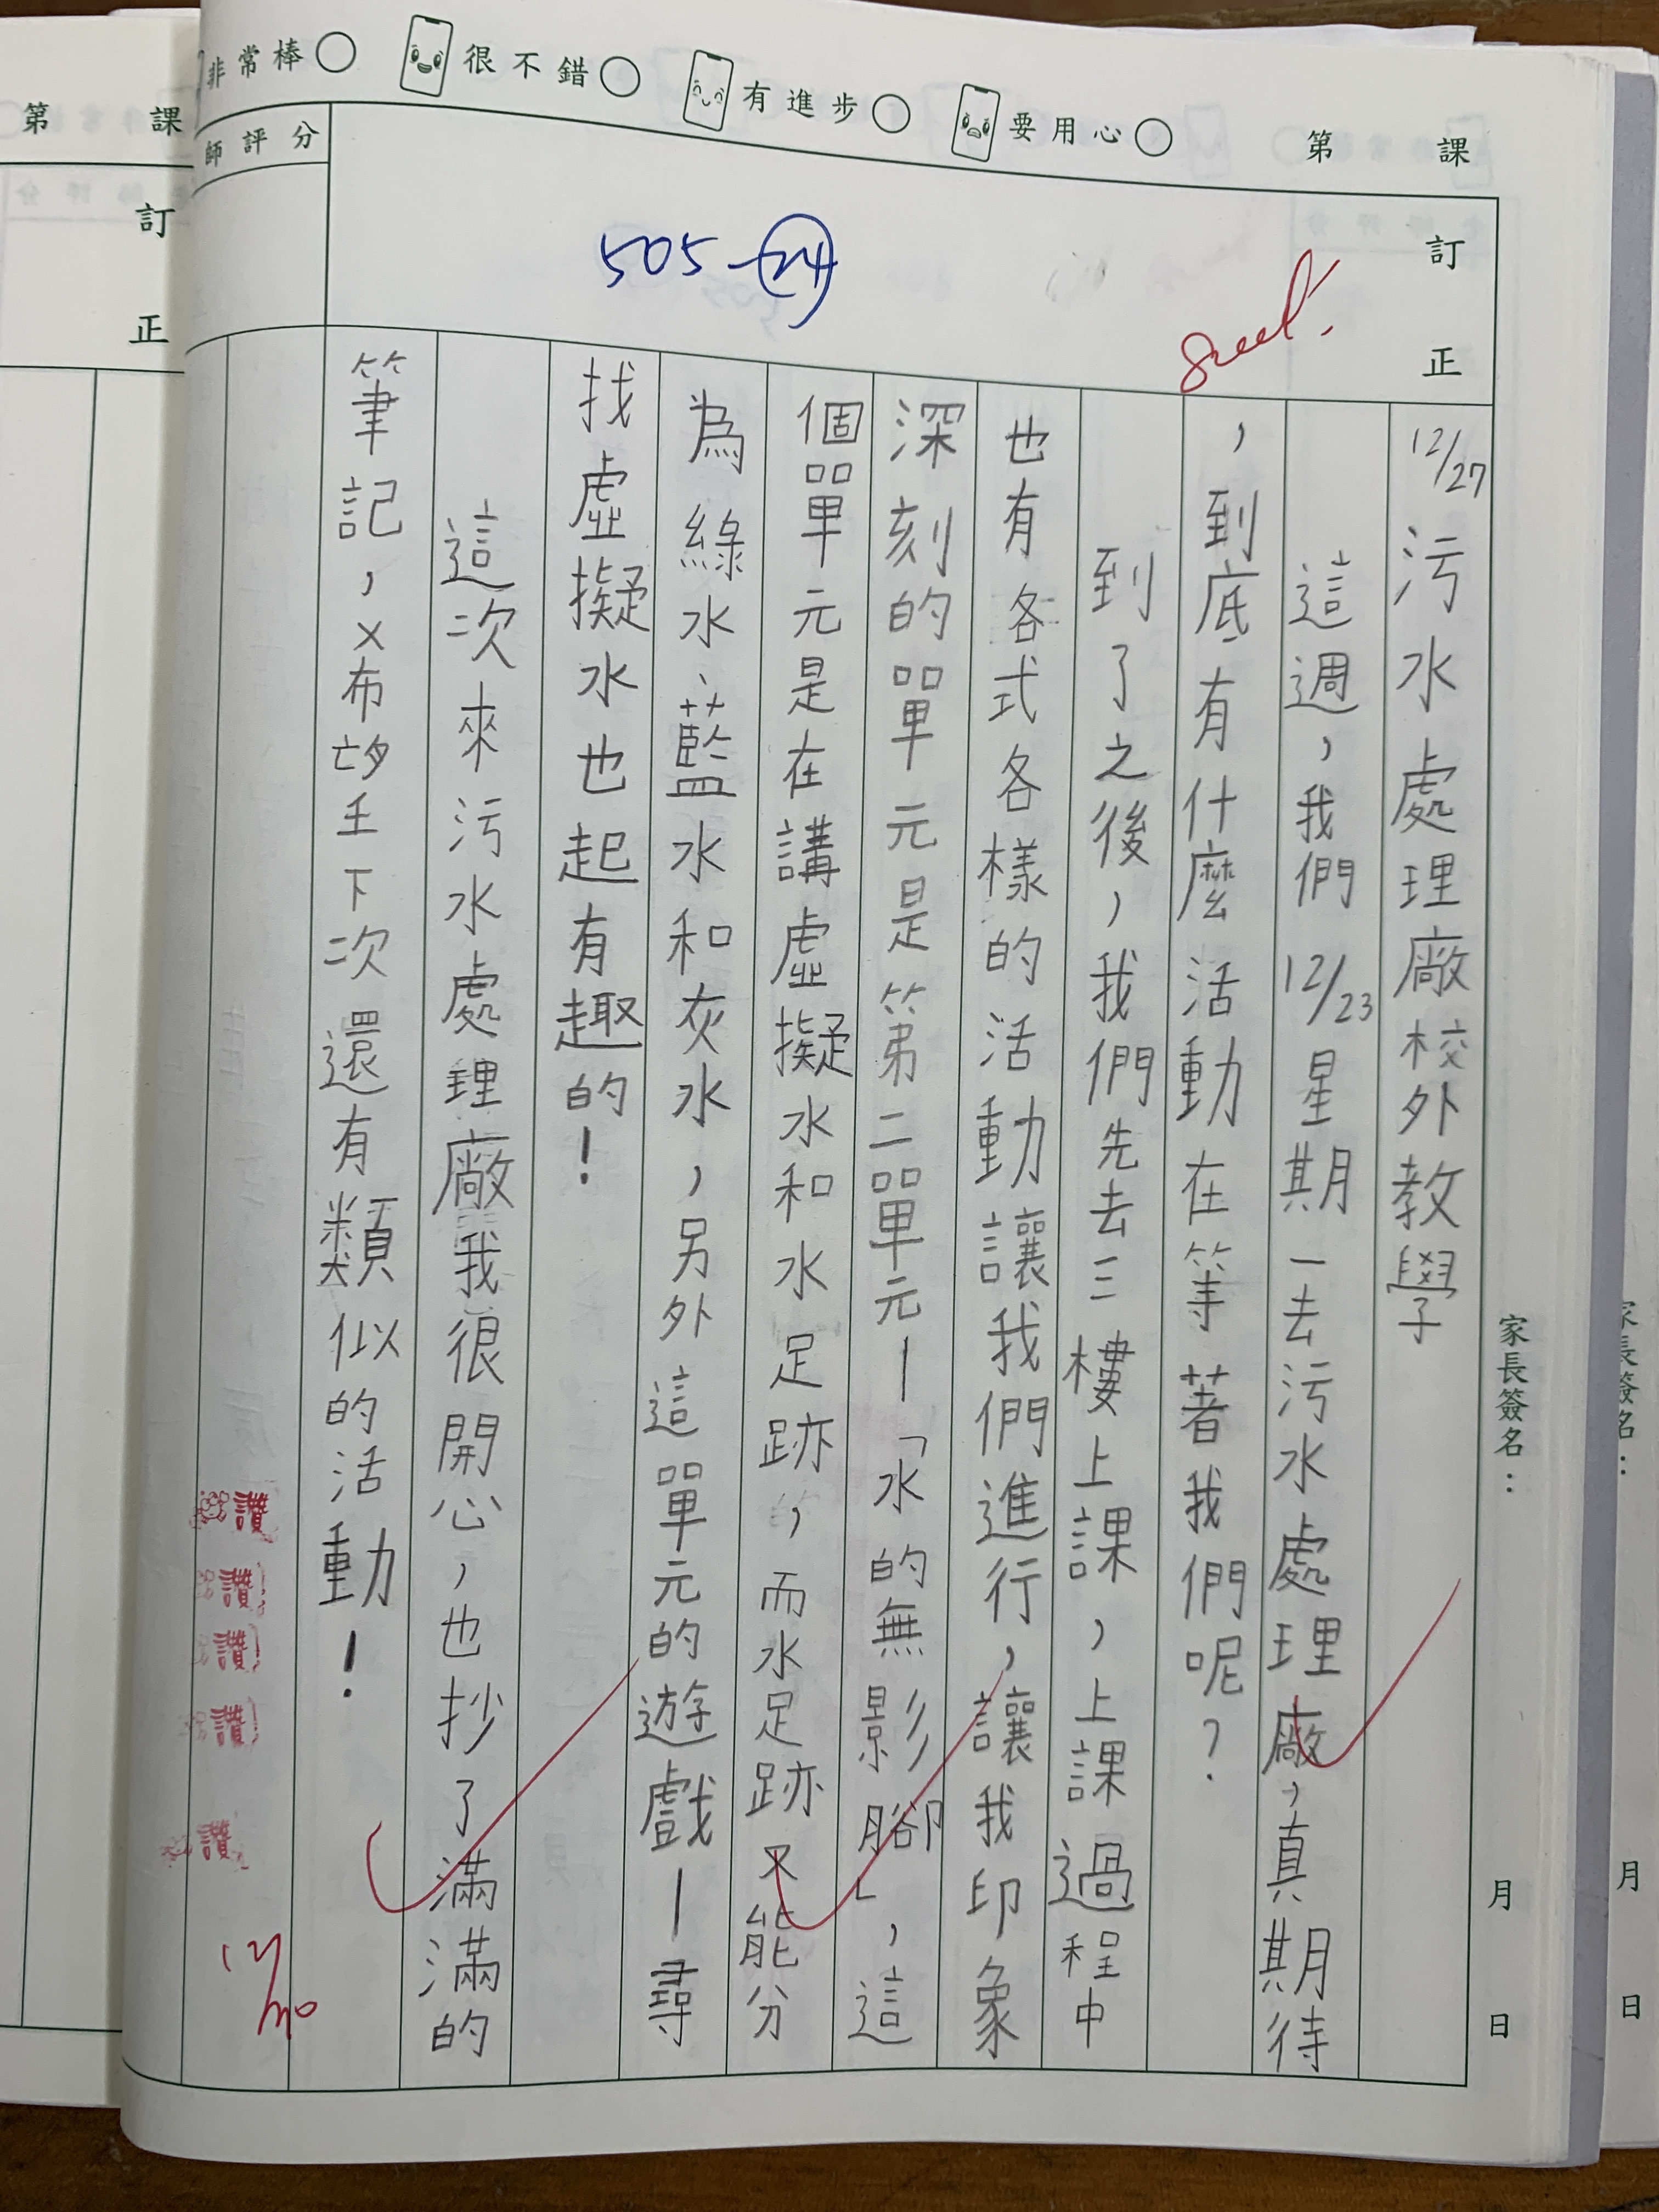 非常棒 很不錯 有進步 要用心 第 課
師評分
505-24
訂正
家長簽名：
月 日
12/27 污水處理廠校外教學
這週，我們12/23星期一去污水處理廠，真期待
，到底有什麼活動在等著我們呢？
到了之後，我們先去三樓上課，上課過程中
也有各式各樣的活動讓我們進行，讓我印象
深刻的單元是第二單元—「水的無影腳」，這
個單元是在講虛擬水和水足跡，而水足跡又能分
為綠水、藍水和灰水，另外這單元的遊戲—尋
找虛擬水也起有趣的！
這次來污水處理廠我很開心，也抄了滿滿的
筆記，希望下次還有類似的活動！
讚
讚！
讚！
讚！
讚
第 課
訂正
家長簽名：
月 日